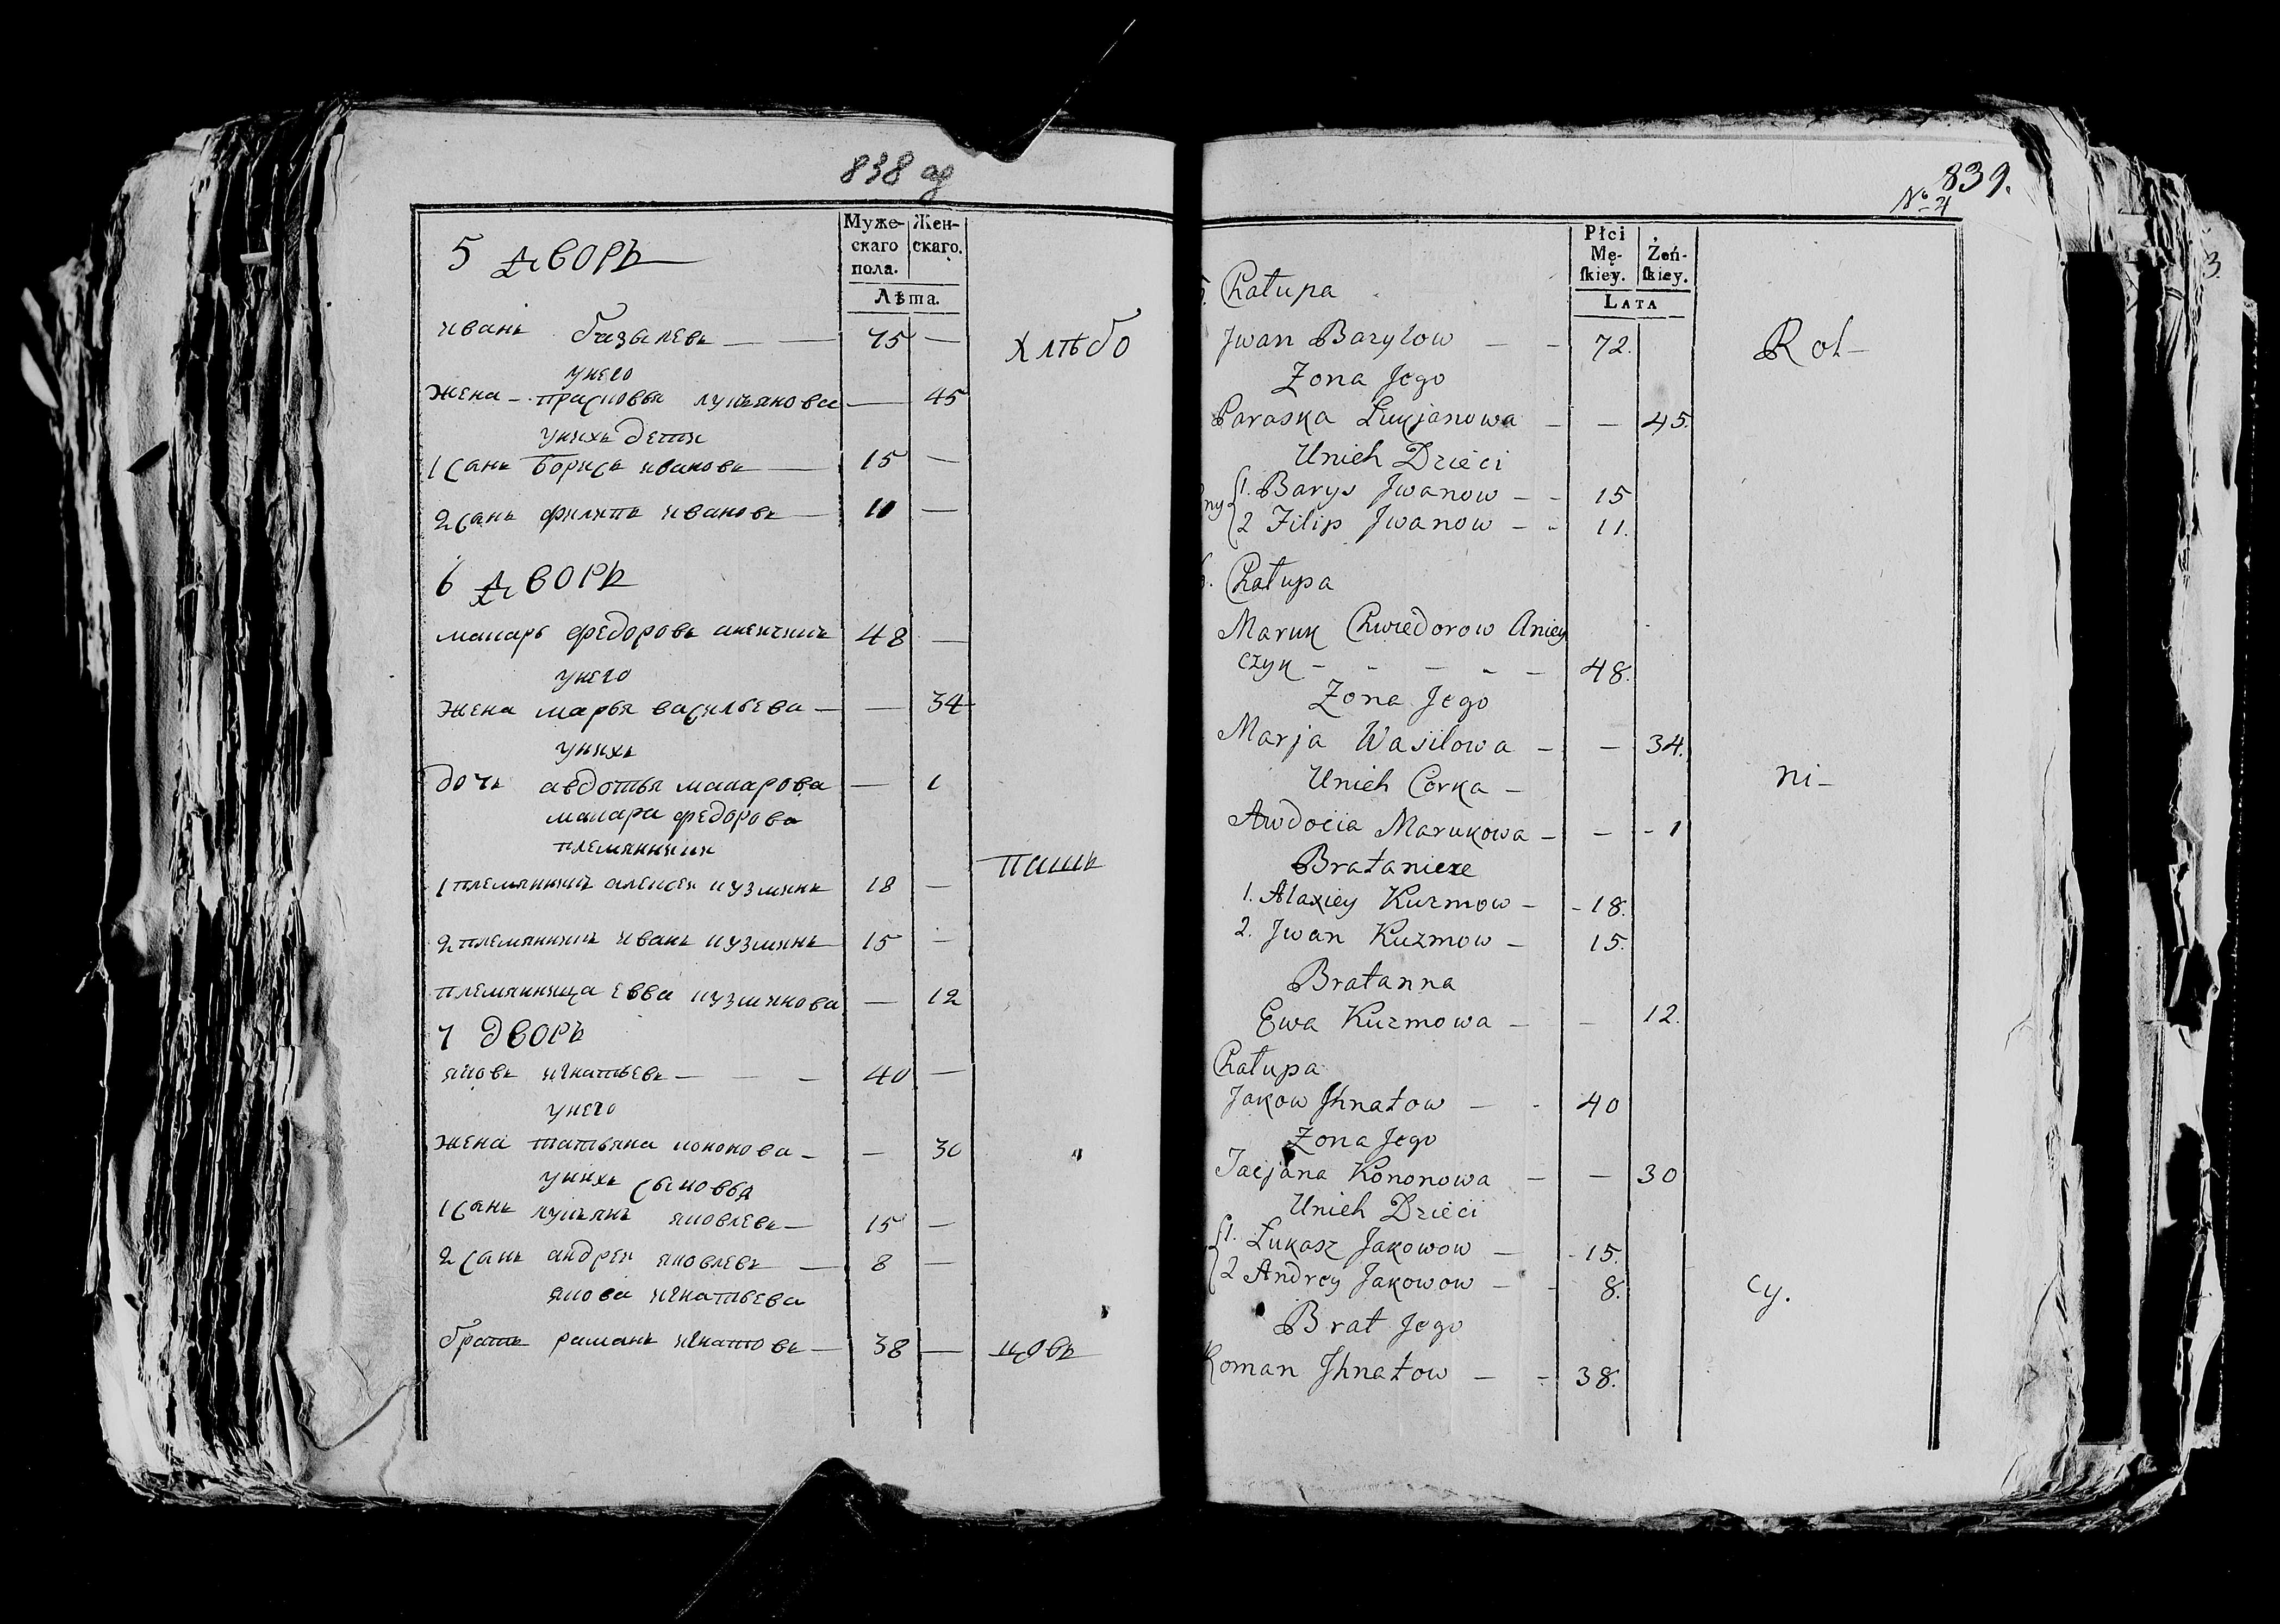 838 об
Муже-
скаго
пола.
Жен-
скаго.
Лѣта.
5 дворъ
иванъ базылевъ — — 75 —
хлѣбо
у него
жена — прасковья лукьянова — 45
у нихъ дети
1 санъ борисъ ивановъ — 15 —
2 санъ филипъ ивановъ — 11 —
6 дворъ
макаръ федоровъ 48 —
у него
жена марья васильева — — 34
у нихъ
дочь авдотья макарова — 1
макара федорова
племянники
пашъ
1 племянникъ алексей кузминъ 18 —
2 племянникъ иванъ кузминъ 15 —
племянница евва кузминова — 12
7 дворъ
яковъ игнатьевъ — — — 40 —
у него
жена татьяна кононова — — 30
у нихъ сыновья
1 санъ лукьянъ яковлевъ — 15 —
2 санъ андрей яковлевъ — 8 —
якова игнатьева
братъ раманъ игнатовъ — 38 —
цовъ
839.
№ 4
Płci
Mę-
ſkiey.
Żeń-
ſkiey.
LATA
5. Chałupa
Jwan Bazylow — — 72.
Rol—
Zona Jego
Paraska Lukjanowa — — 45.
Unich Dzieci
1. Barys Jwanow — - 15
2 Filip Jwanow — - 11.
6. Chałupa
Maruk Chwiedorow Aniey
czyk - - — - — 48.
Zona Jego
Marja Wasilowa — — 34.
Unich Corka —
ni—
Awdocia Marukowa — — - 1
Bratanicze
1. Alaxiey Kuzmow — - 18.
2. Jwan Kuzmow — 15.
Bratanna
Ewa Kuzmowa — — 12.
Chałupa
Jakow Jhnatow — - 40
Zona Jego
Tacjana Kononowa — — 30
Unich Dzieci
1. Lukasz Jakowow — - 15.
2 Andrey Jakowow — - 8.
cy.
Brat Jego
Roman Jhnatow — - 38.